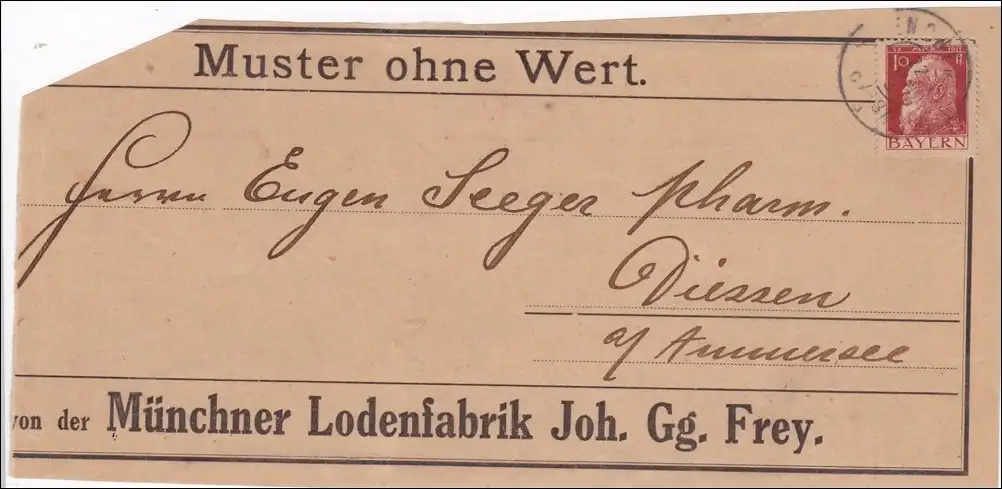 Muster ohne Wert.
10
BAYERN
Herrn Eugen Seeger pharm.
Diessen
a/ Ammersee
von der Münchner Lodenfabrik Joh. Gg. Frey.